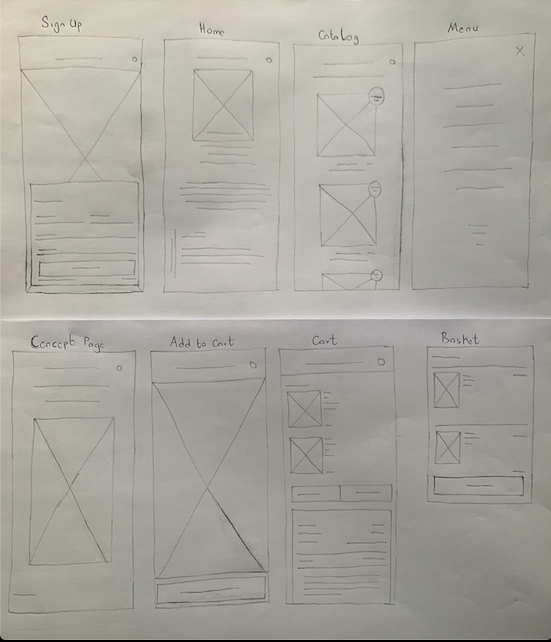 Sign Up
Home
Catalog
Menu
Concept Page
Add to Cart
Cart
Basket